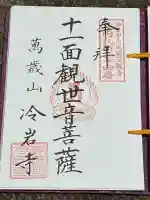 奉拝
十一面観世音菩薩
萬歳山 冷岩寺